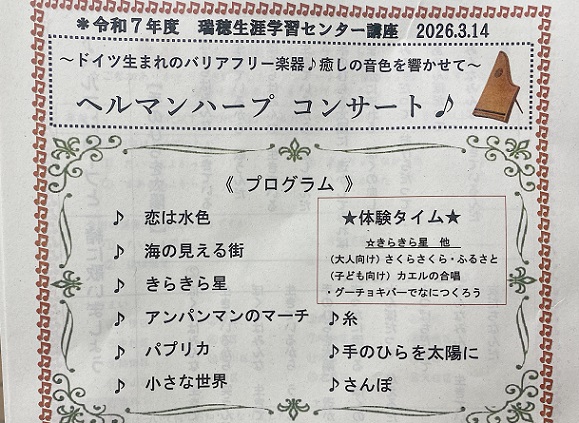 ＊令和７年度　瑞穂生涯学習センター講座　2026.3.14
～ドイツ生まれのバリアフリー楽器♪癒しの音色を響かせて～
ヘルマンハープ コンサート♪
《 プログラム 》
♪ 恋は水色
♪ 海の見える街
♪ きらきら星
♪ アンパンマンのマーチ
♪ パプリカ
♪ 小さな世界
★体験タイム★
☆きらきら星　他
（大人向け）さくらさくら・ふるさと
（子ども向け）カエルの合唱
・グーチョキパーでなにつくろう
♪糸
♪手のひらを太陽に
♪さんぽ